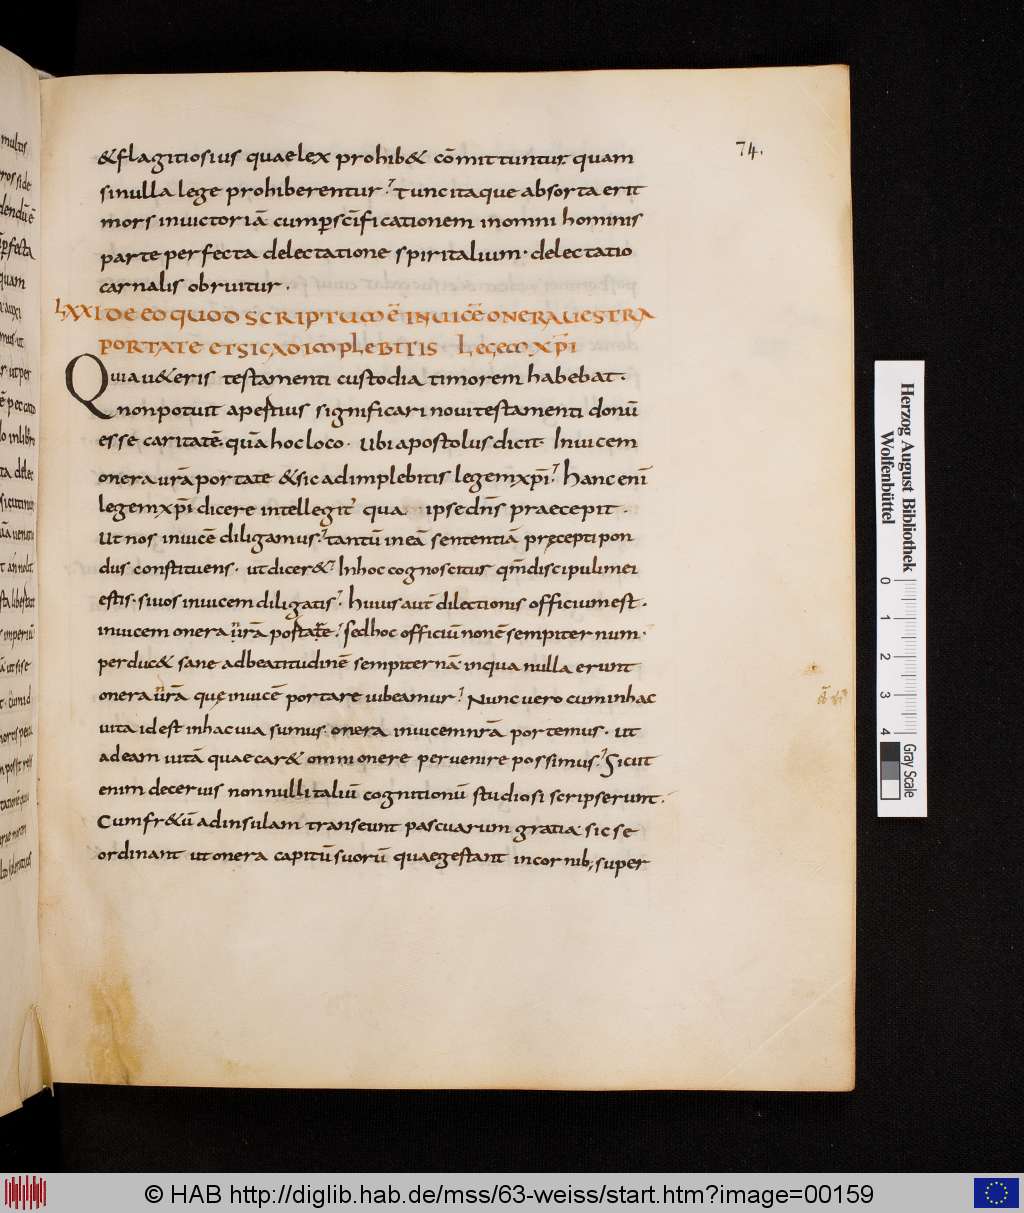 74.
& flagitiosius quae lex prohib& cōmittuntur quam
si nulla lege prohiberentur? Tunc itaque absorta erit
mors in uictoriā cum p scīficationem in omni hominis
parte perfecta delectatione spiritalium · delectatio
carnalis obruitur ·
LXXI DE EO QUOD SCRIPTUM Ē INUICĒ ONERA UESTRA
PORTATE ET SIC ADIMPLEBITIS LEGEM XP̄I
Quia u&eris testamenti custodia timorem habebat ·
non potuit apertius significari noui testamenti donū
esse caritatē quā hoc loco · Ubi apostolus dicit · Inuicem
onera ur̄a portate & sic adimplebitis legem xp̄i? Hanc enī
legem xp̄i dicere intellegit' qua ipse dn̄s praecepit ·
Ut nos inuicē diligamus? tantū in eā sententiā pręcepti pon
dus constituens · ut dicer&? In hoc cognoscitus qm̄ discipuli mei
estis · si uos inuicem diligatis? huius aut̄ dilectionis officium est ·
inuicem onera ur̄a portare? sed hoc officiū non ē sempiternum ·
perduc& sane ad beatitudinē sempiternā in qua nulla erunt
onera ur̄a quę inuicē portare iubeamur? Nunc uero cum in hac
uita id est in hac uia sumus · onera inuicem nr̄a portemus · ut
ad eam uitā quae car& omni onere peruenire possimus? Sicut
enim de ceruis nonnulli taliū cognitionū studiosi scripserunt ·
Cum fr&ū ad insulam transeunt pascuarum gratia sic se
ordinant ut onera capitū suorū quae gestant in cornib; super
multis
quam
Herzog August Bibliothek
Wolfenbüttel
0 1 2 3 4
Gray Scale
© HAB http://diglib.hab.de/mss/63-weiss/start.htm?image=00159